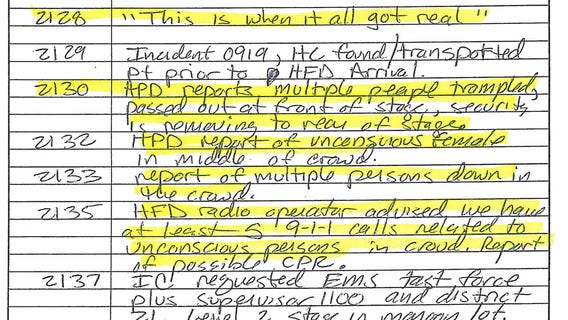 2128 "This is when it all got real"
2129 Incident 0919, HC found/transported
pt prior to HFD Arrival.
2130 HPD reports, multiple people trampled,
passed out at front of stage, security
is removing to rear of stage.
2132 HPD report of unconsious female
in middle of crowd.
2133 report of multiple persons down in
the crowd.
2135 HFD radio operator advised we have
at least 5 9-1-1 calls related to
unconscious persons in crowd. Report
of possible CPR.
2137 IC requested Ems task force
plus supervisor 1100 and district
21, level 2 stage in maroon lot.